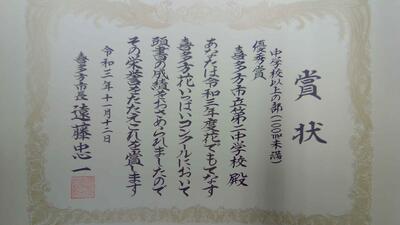 賞状
中学校以上の部(100㎡未満)
優秀賞
喜多方市立第二中学校 殿
あなたは令和三年度花でもてなす
喜多方花いっぱいコンクールにおいて
頭書の成績をおさめられましたので
その栄誉をたたえこれを賞します
令和三年十一月十二日
喜多方市長 遠藤忠一